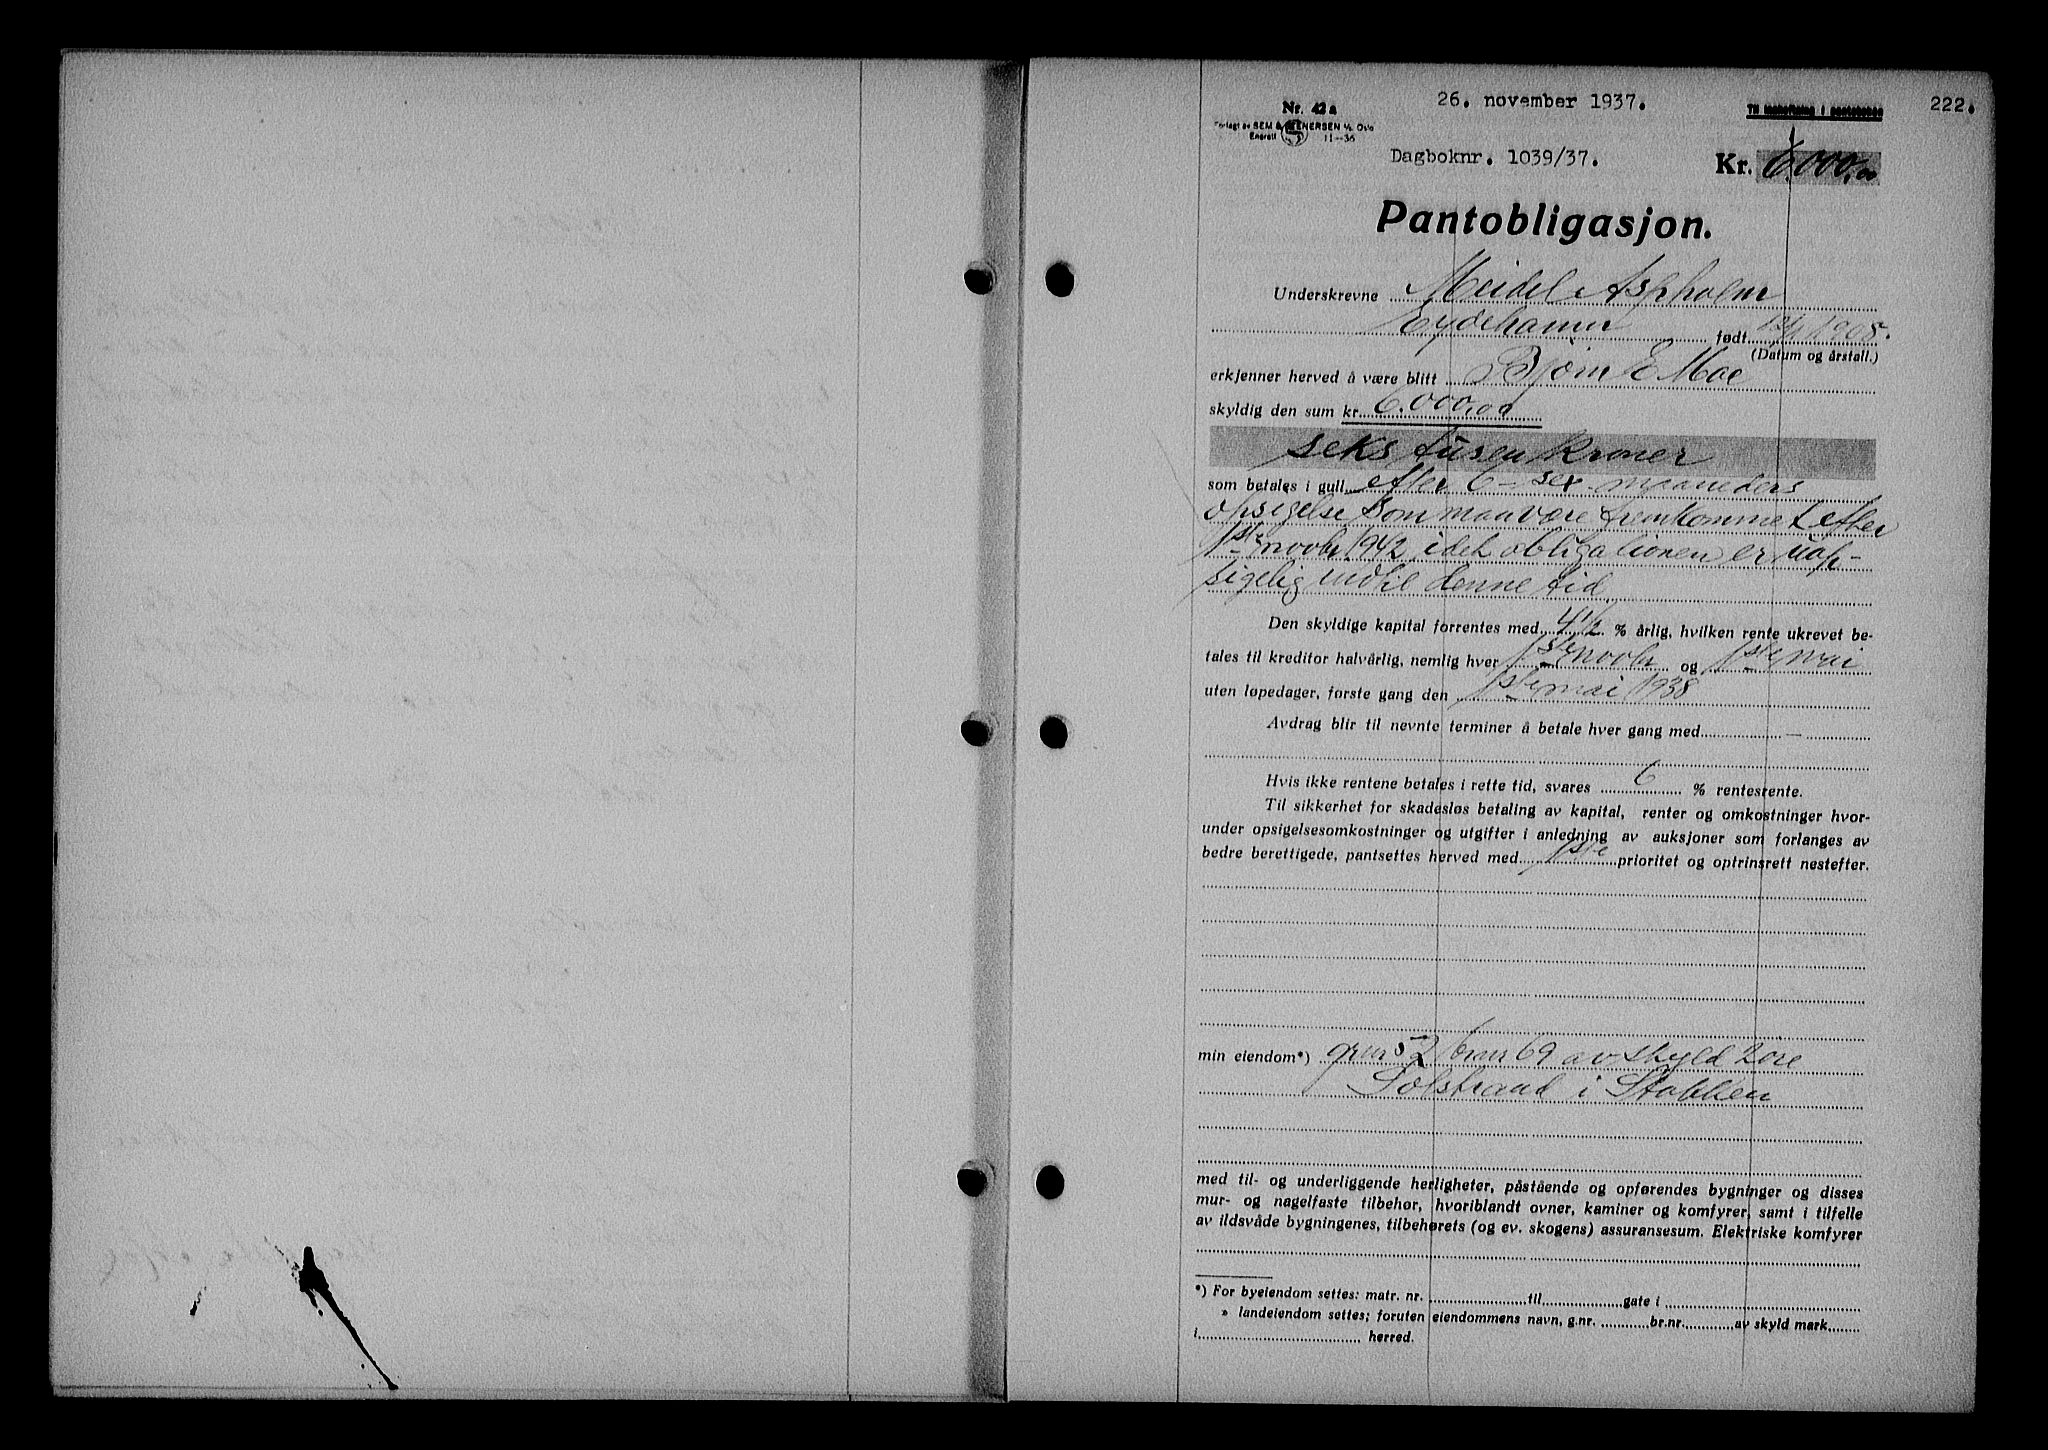 26. november 1937.
222.
Nr. 42a
Til innheftning i pantebøkene
Forlagt av SEM & STENERSEN A/S Oslo
Enerett S 11-36
Dagboknr. 1039/37.
Kr. 6.000,00
Pantobligasjon.
Underskrevne Meidel Aspholm
Eydehavn født 1905.
(Datum og årstall.)
erkjenner herved å være blitt Bjørn E Moe
skyldig den sum kr. 6.000,00
seks tusen kroner
som betales i gull efter 6 - sex maaneders
opsigelse som maa være fremkommet efter
1ste novbr 1942, idet obligationen er uop-
sigelig indtil denne tid
Den skyldige kapital forrentes med 4 1/2 % årlig, hvilken rente ukrevet be-
tales til kreditor halvårlig, nemlig hver 1ste novbr og 1ste mai
uten løpedager, første gang den 1ste mai 1938
Avdrag blir til nevnte terminer å betale hver gang med —
Hvis ikke rentene betales i rette tid, svares 6 % rentesrente.
Til sikkerhet for skadesløs betaling av kapital, renter og omkostninger hvor-
under opsigelsesomkostninger og utgifter i anledning av auksjoner som forlanges av
bedre berettigede, pantsettes herved med 1ste prioritet og optrinsrett nestefter.
min eiendom*) grnr 52 brnr 69 av skyld 2 øre
Solstrand i Stokken
med til- og underliggende herligheter, påstående og opførendes bygninger og disses
mur- og nagelfaste tilbehør, hvoriblandt ovner, kaminer og komfyrer, samt i tilfelle
av ildsvåde bygningenes, tilbehørets (og ev. skogens) assuransesum. Elektriske komfyrer
*) For byeiendom settes: matr. nr. til gate i
» landeiendom settes; foruten eiendommens navn, g.nr. br.nr. av skyld mark
i herred.